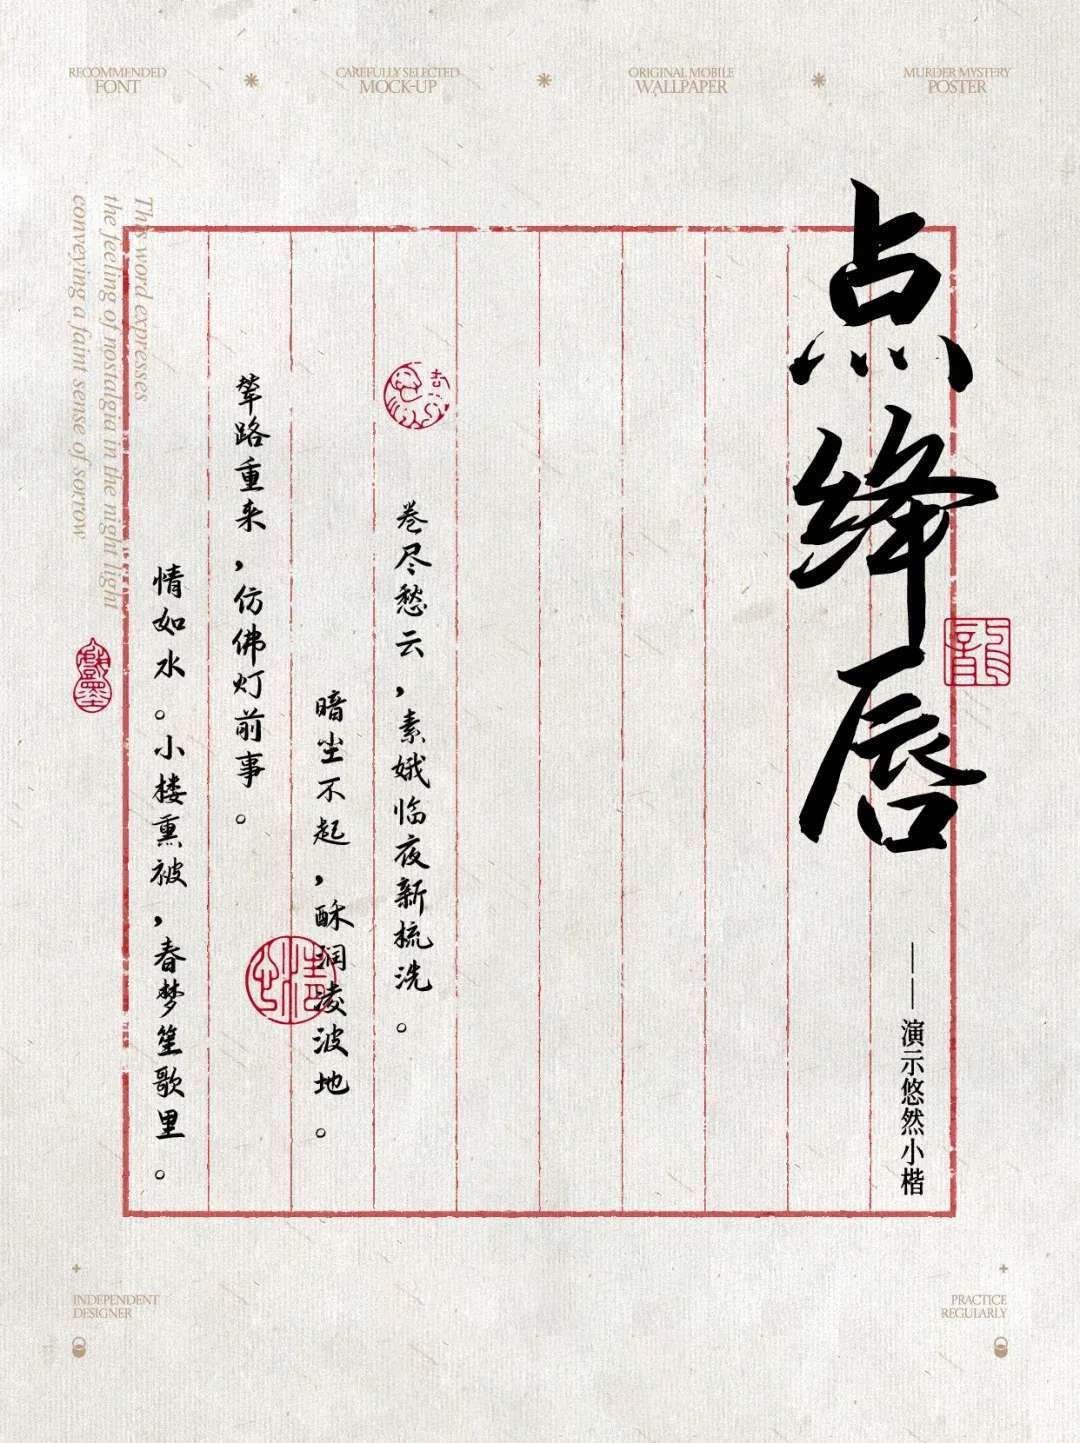 RECOMMENDED
FONT
CAREFULLY SELECTED
MOCK-UP
ORIGINAL MOBILE
WALLPAPER
MURDER MYSTERY
POSTER
点绛唇
——演示悠然小楷
龍
卷尽愁云，素娥临夜新梳洗。
暗尘不起，酥润凌波地。
辇路重来，仿佛灯前事。
情如水。小楼熏被，春梦笙歌里。
This word expresses
the feeling of nostalgia in the night light
conveying a faint sense of sorrow
INDEPENDENT
DESIGNER
PRACTICE
REGULARLY